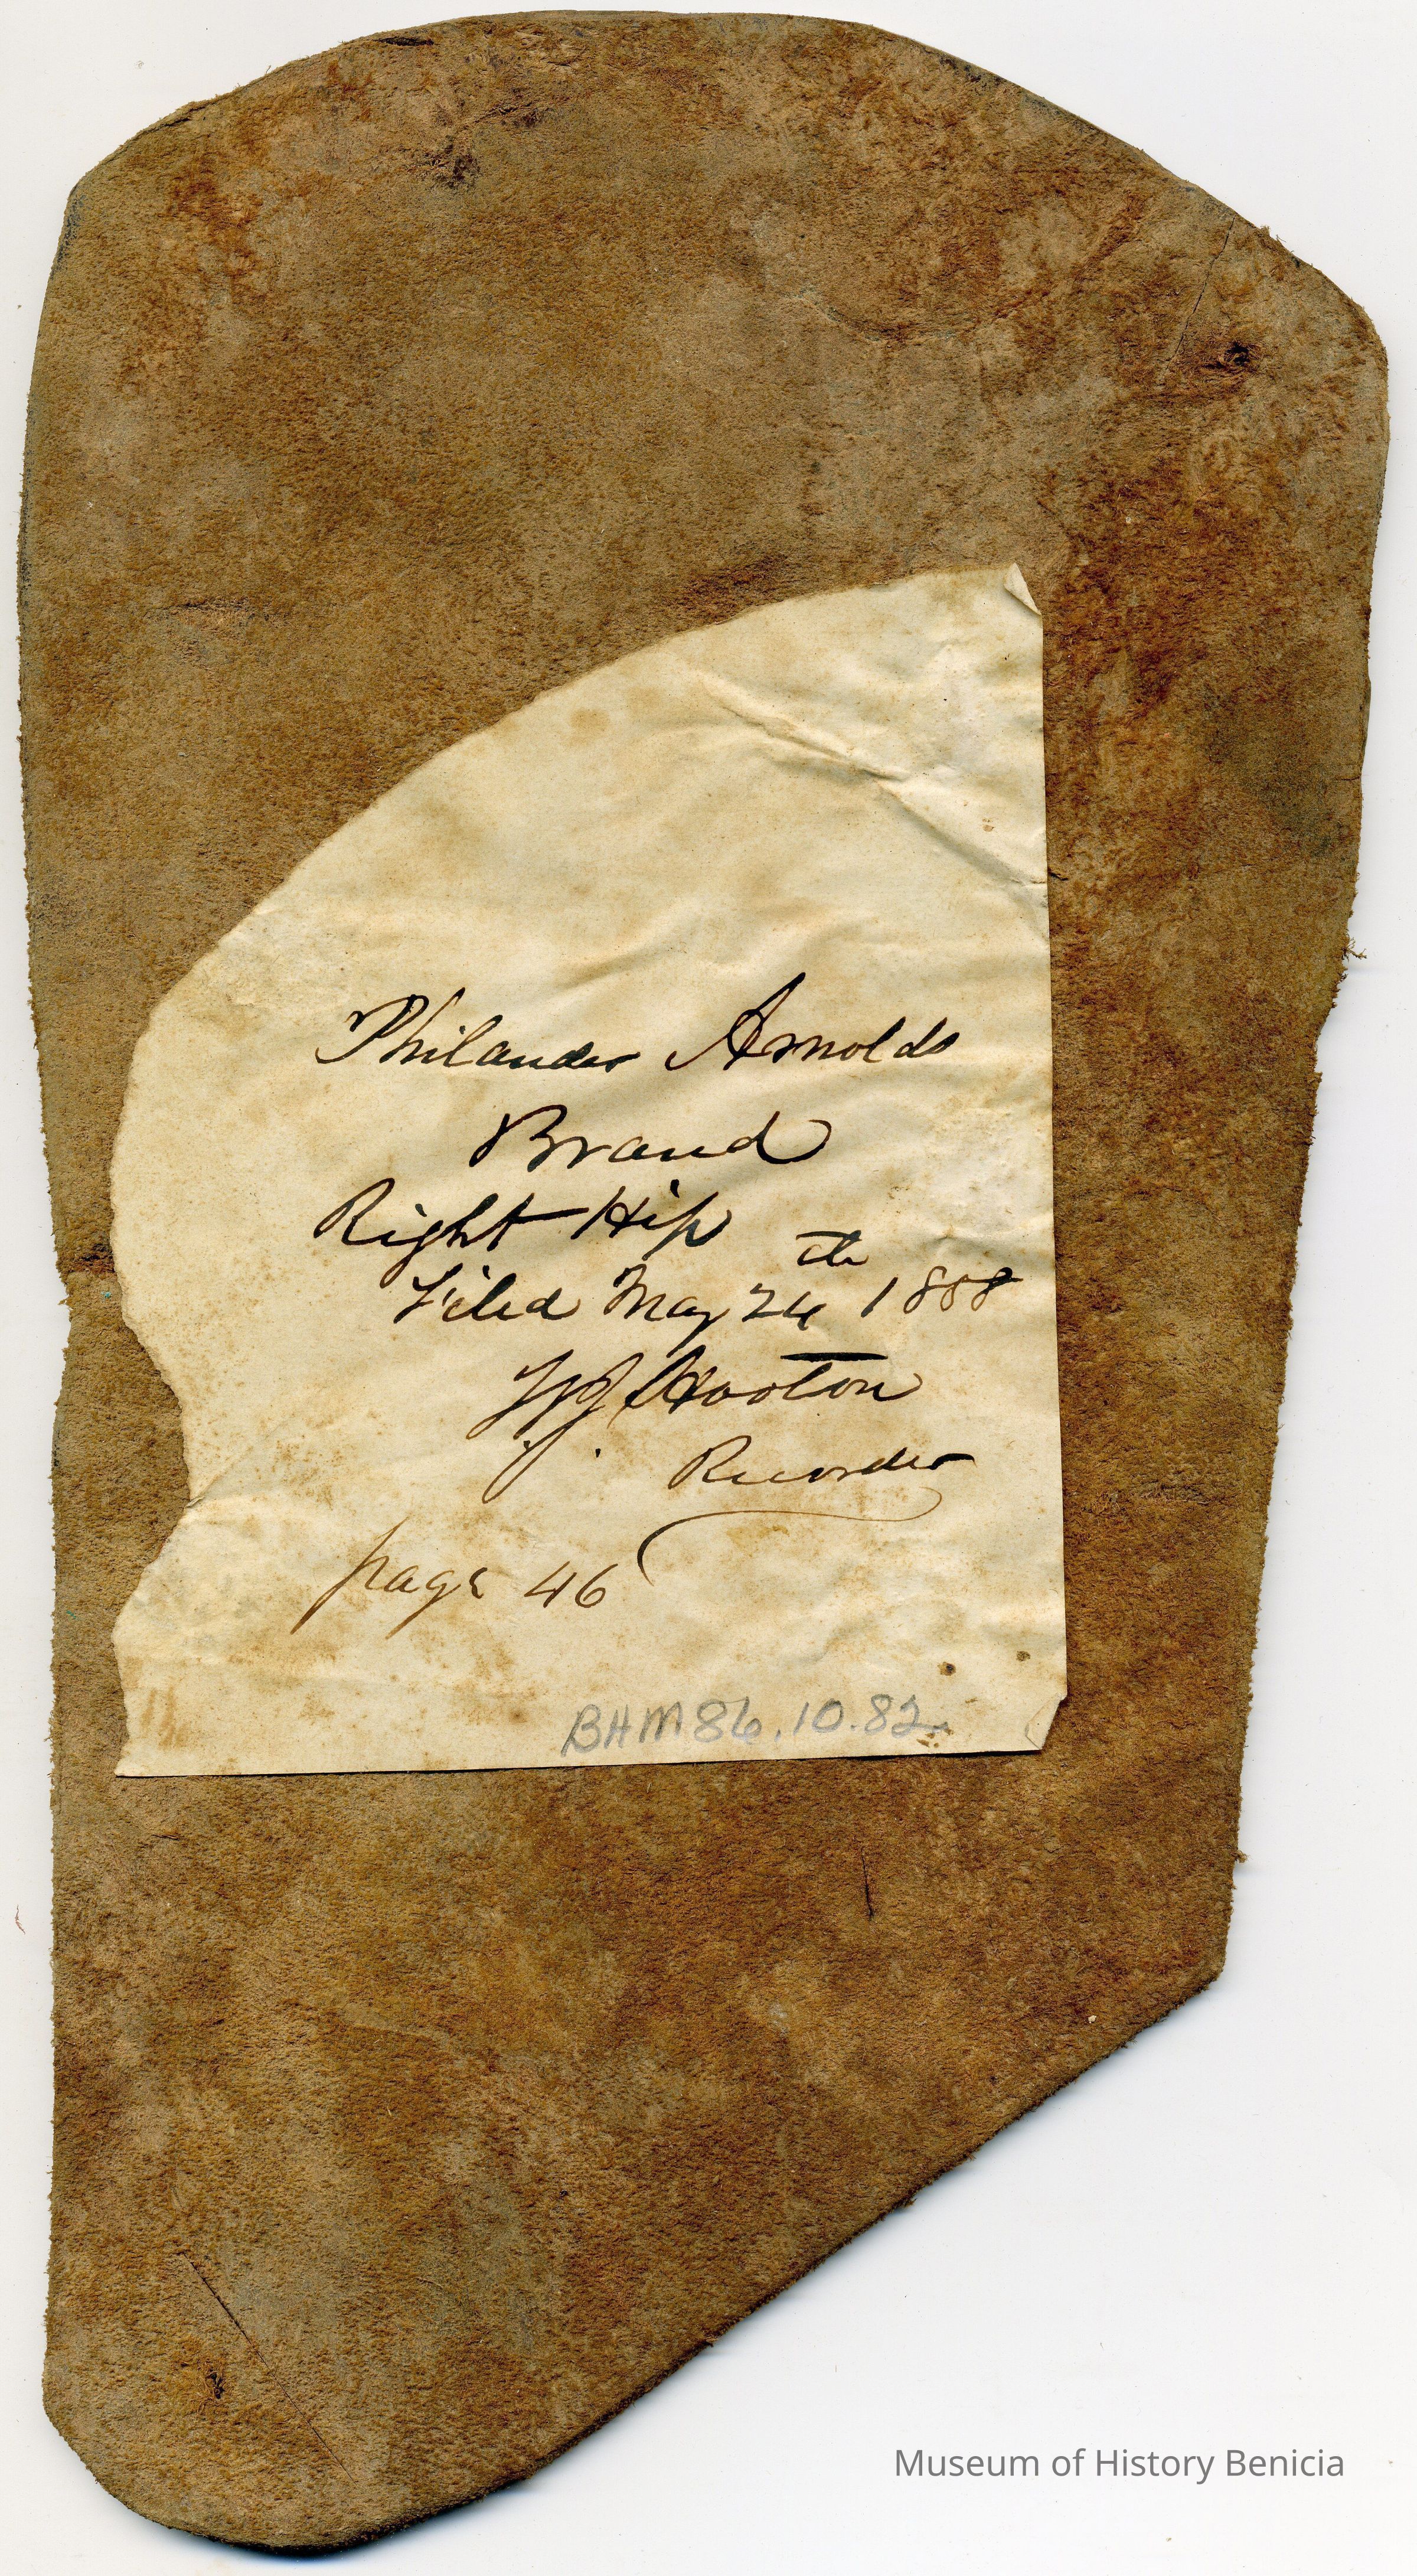 Philander Arnolds
Brand
Right Hip
Filed May 24th 1858
Hooton
Recorder
page 46
BHM86.10.82
Museum of History Benicia